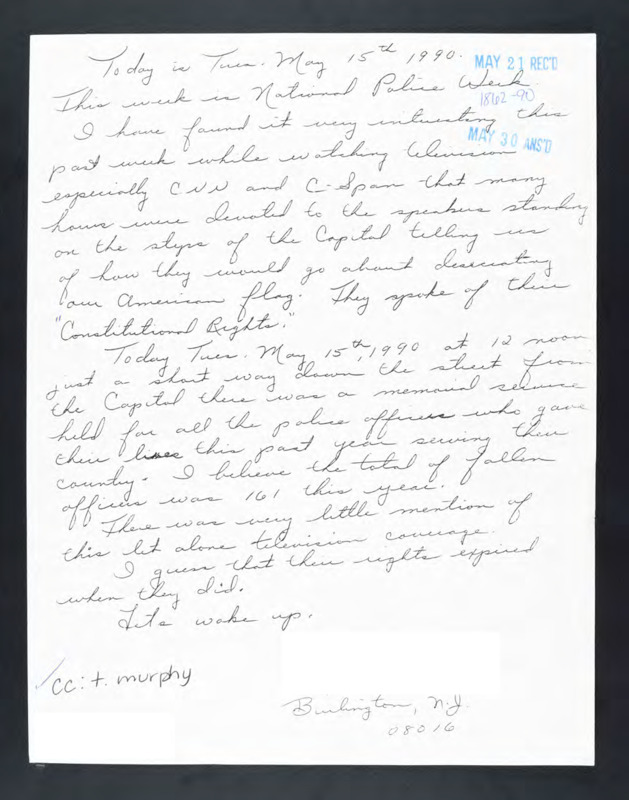 Today is Tues. May 15th 1990.
MAY 21 REC'D
This week is National Police Week
18162-90
I have found it very interesting this
MAY 30 ANS'D
past week while watching television
especially CNN and C-Span that many
hours were devoted to the speakers standing
on the steps of the Capital telling us
of how they would go about desecrating
our American flag. They spoke of their
"Constitutional Rights."
Today Tues. May 15th, 1990 at 12 noon
just a short way down the street from
the Capital there was a memorial service
held for all the police officers who gave
their lives this past year serving their
country. I believe the total of fallen
officers was 161 this year.
There was very little mention of
this let alone television coverage.
I guess that their rights expired
when they did.
Lets wake up.
cc: t. murphy
Burlington, N.J.
08016